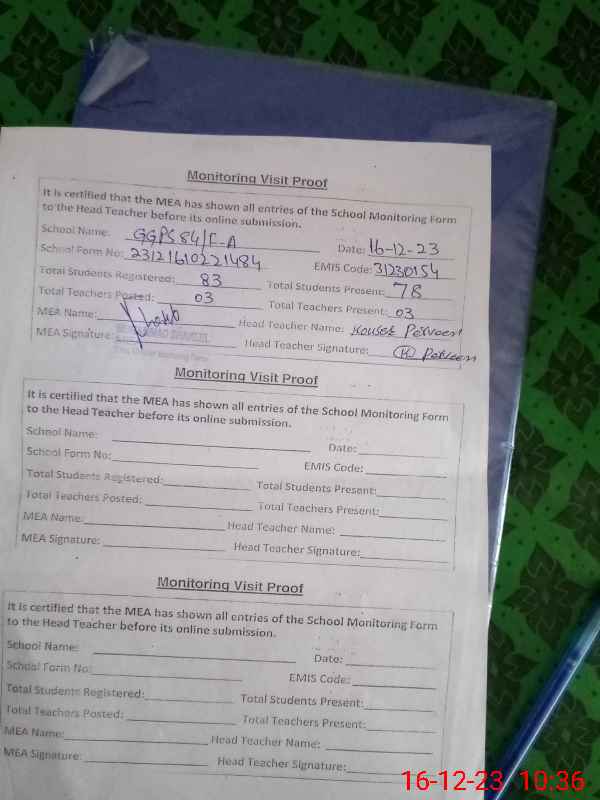 Monitoring Visit Proof
It is certified that the MEA has shown all entries of the School Monitoring Form
to the Head Teacher before its online submission.
School Name: GGPS 84/F-A Date: 16-12-23
School Form No: 23121610221484 EMIS Code: 31230154
Total Students Registered: 83 Total Students Present: 78
Total Teachers Posted: 03 Total Teachers Present: 03
MEA Name: Head Teacher Name: Kousar Perveen
MEA Signature: Head Teacher Signature: Perveen
Monitoring Visit Proof
It is certified that the MEA has shown all entries of the School Monitoring Form
to the Head Teacher before its online submission.
School Name: Date:
School Form No: EMIS Code:
Total Students Registered: Total Students Present:
Total Teachers Posted: Total Teachers Present:
MEA Name: Head Teacher Name:
MEA Signature: Head Teacher Signature:
Monitoring Visit Proof
It is certified that the MEA has shown all entries of the School Monitoring Form
to the Head Teacher before its online submission.
School Name: Date:
School Form No: EMIS Code:
Total Students Registered: Total Students Present:
Total Teachers Posted: Total Teachers Present:
MEA Name: Head Teacher Name:
MEA Signature: Head Teacher Signature:
16-12-23 10:36